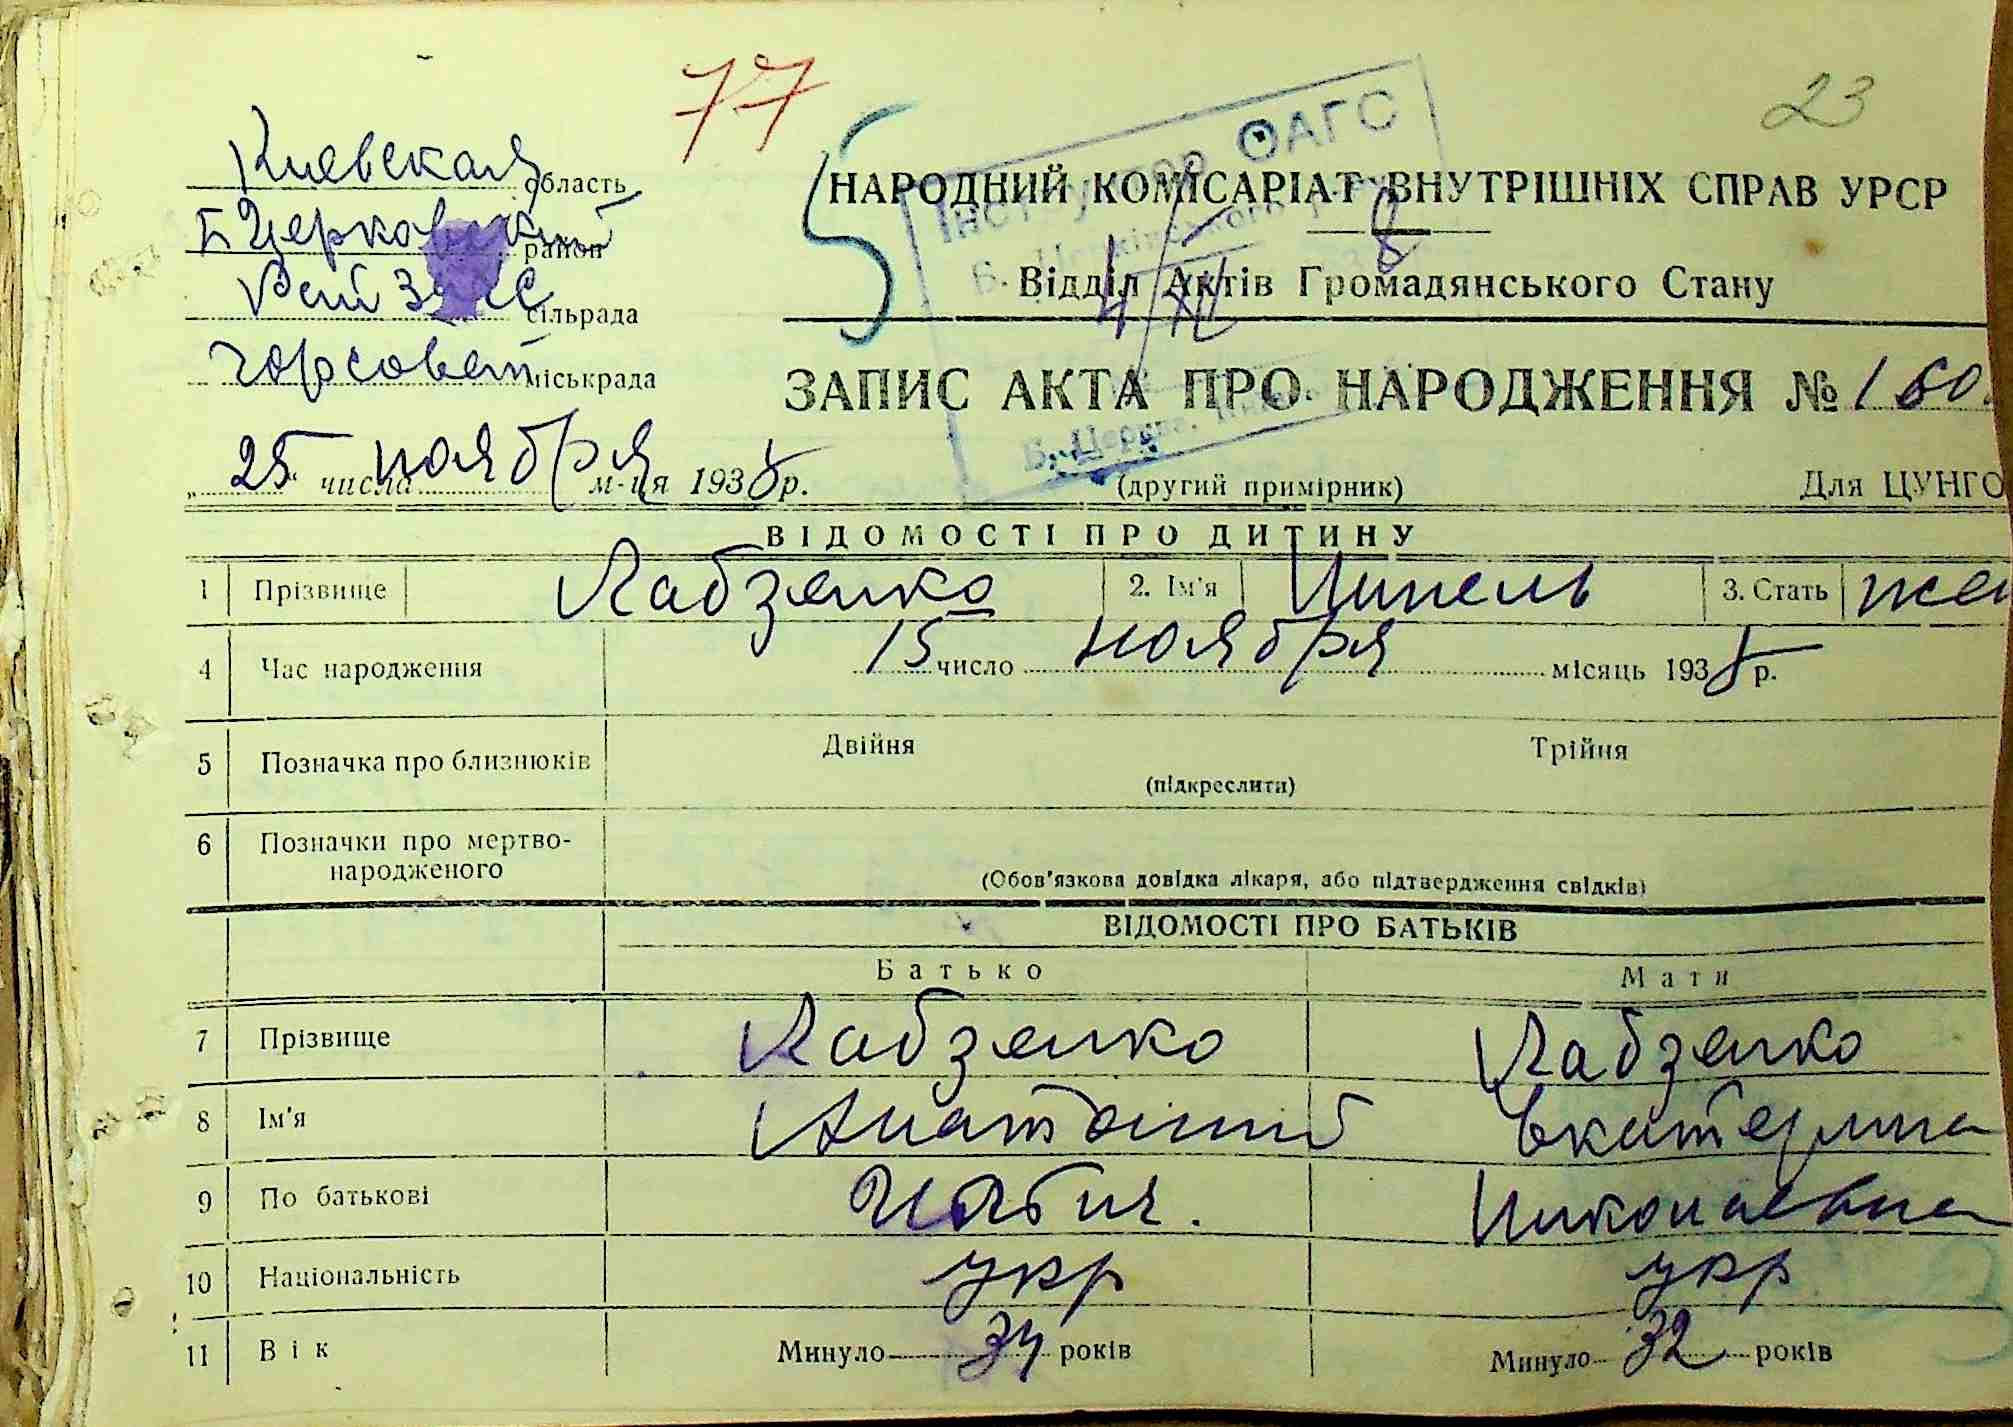 77
23
5
Киевская область
Б Церковский район
Рай ЗАГС сільрада
горсовет міськрада
НАРОДНИЙ КОМІСАРІАТ ВНУТРІШНІХ СПРАВ УРСР
Відділ Актів Громадянського Стану
Інструктор ОАГС
4/XII 8
ЗАПИС АКТА ПРО НАРОДЖЕННЯ № 160
„25" числа ноября м-ця 1938 р.
(другий примірник)
Для ЦУНГО
ВІДОМОСТІ ПРО ДИТИНУ
1 Прізвище Лабзенко 2. Ім'я Нинель 3. Стать жен
4 Час народження 15 число ноября місяць 1938 р.
5 Позначка про близнюків Двійня Трійня
(підкреслити)
6 Позначки про мертво-
народженого
(Обов'язкова довідка лікаря, або підтвердження свідків)
ВІДОМОСТІ ПРО БАТЬКІВ
Батько Мати
7 Прізвище Лабзенко Лабзенко
8 Ім'я Анатолий Екатерина
9 По батькові Николаевна
10 Національність укр укр
11 Вік Минуло 34 років Минуло 32 років